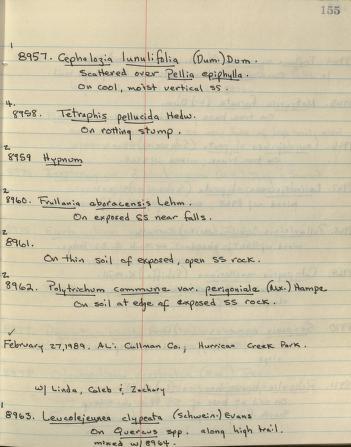 155
1
8957. Cephalozia lunulifolia (Dum.) Dum.
Scattered over Pellia epiphylla.
On cool, moist vertical SS.
4.
8958. Tetraphis pellucida Hedw.
On rotting stump.
2
8959 Hypnum
2
8960. Frullania aboracensis Lehm.
On exposed SS near falls.
2
8961.
On thin soil of exposed, open SS rock.
2
8962. Polytrichum commune var. perigoniale (Mx.) Hampe
On soil at edge of exposed SS rock.
✓
February 27, 1989. AL: Cullman Co.; Hurrican Creek Park.
w/ Linda, Caleb & Zachary
1
8963. Leucolejeunea clypeata (Schwein.) Evans
On Quercus spp. along high trail.
mixed w/ 8964.